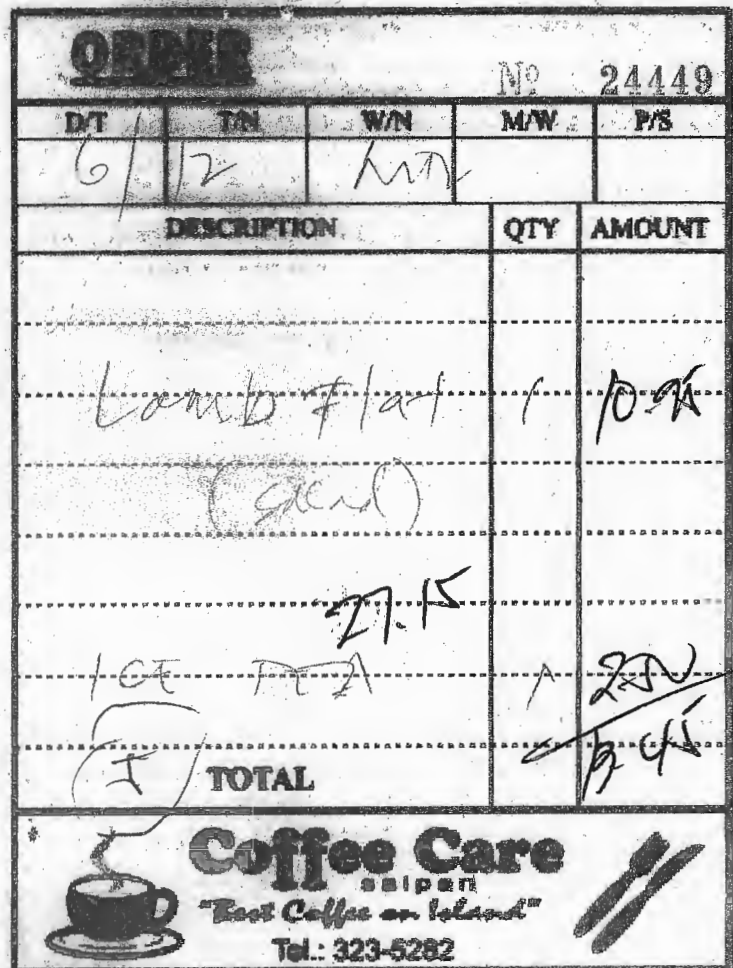 ORDER
Nº 24449
D/T T/N W/N M/W P/S
6/12
DESCRIPTION QTY AMOUNT
Lamb Flat 1 10.95
27.15
ICE TEA 1 2.50
I TOTAL 13.45
Coffee Care
saipan
"Best Coffee on Island"
Tel.: 323-5282